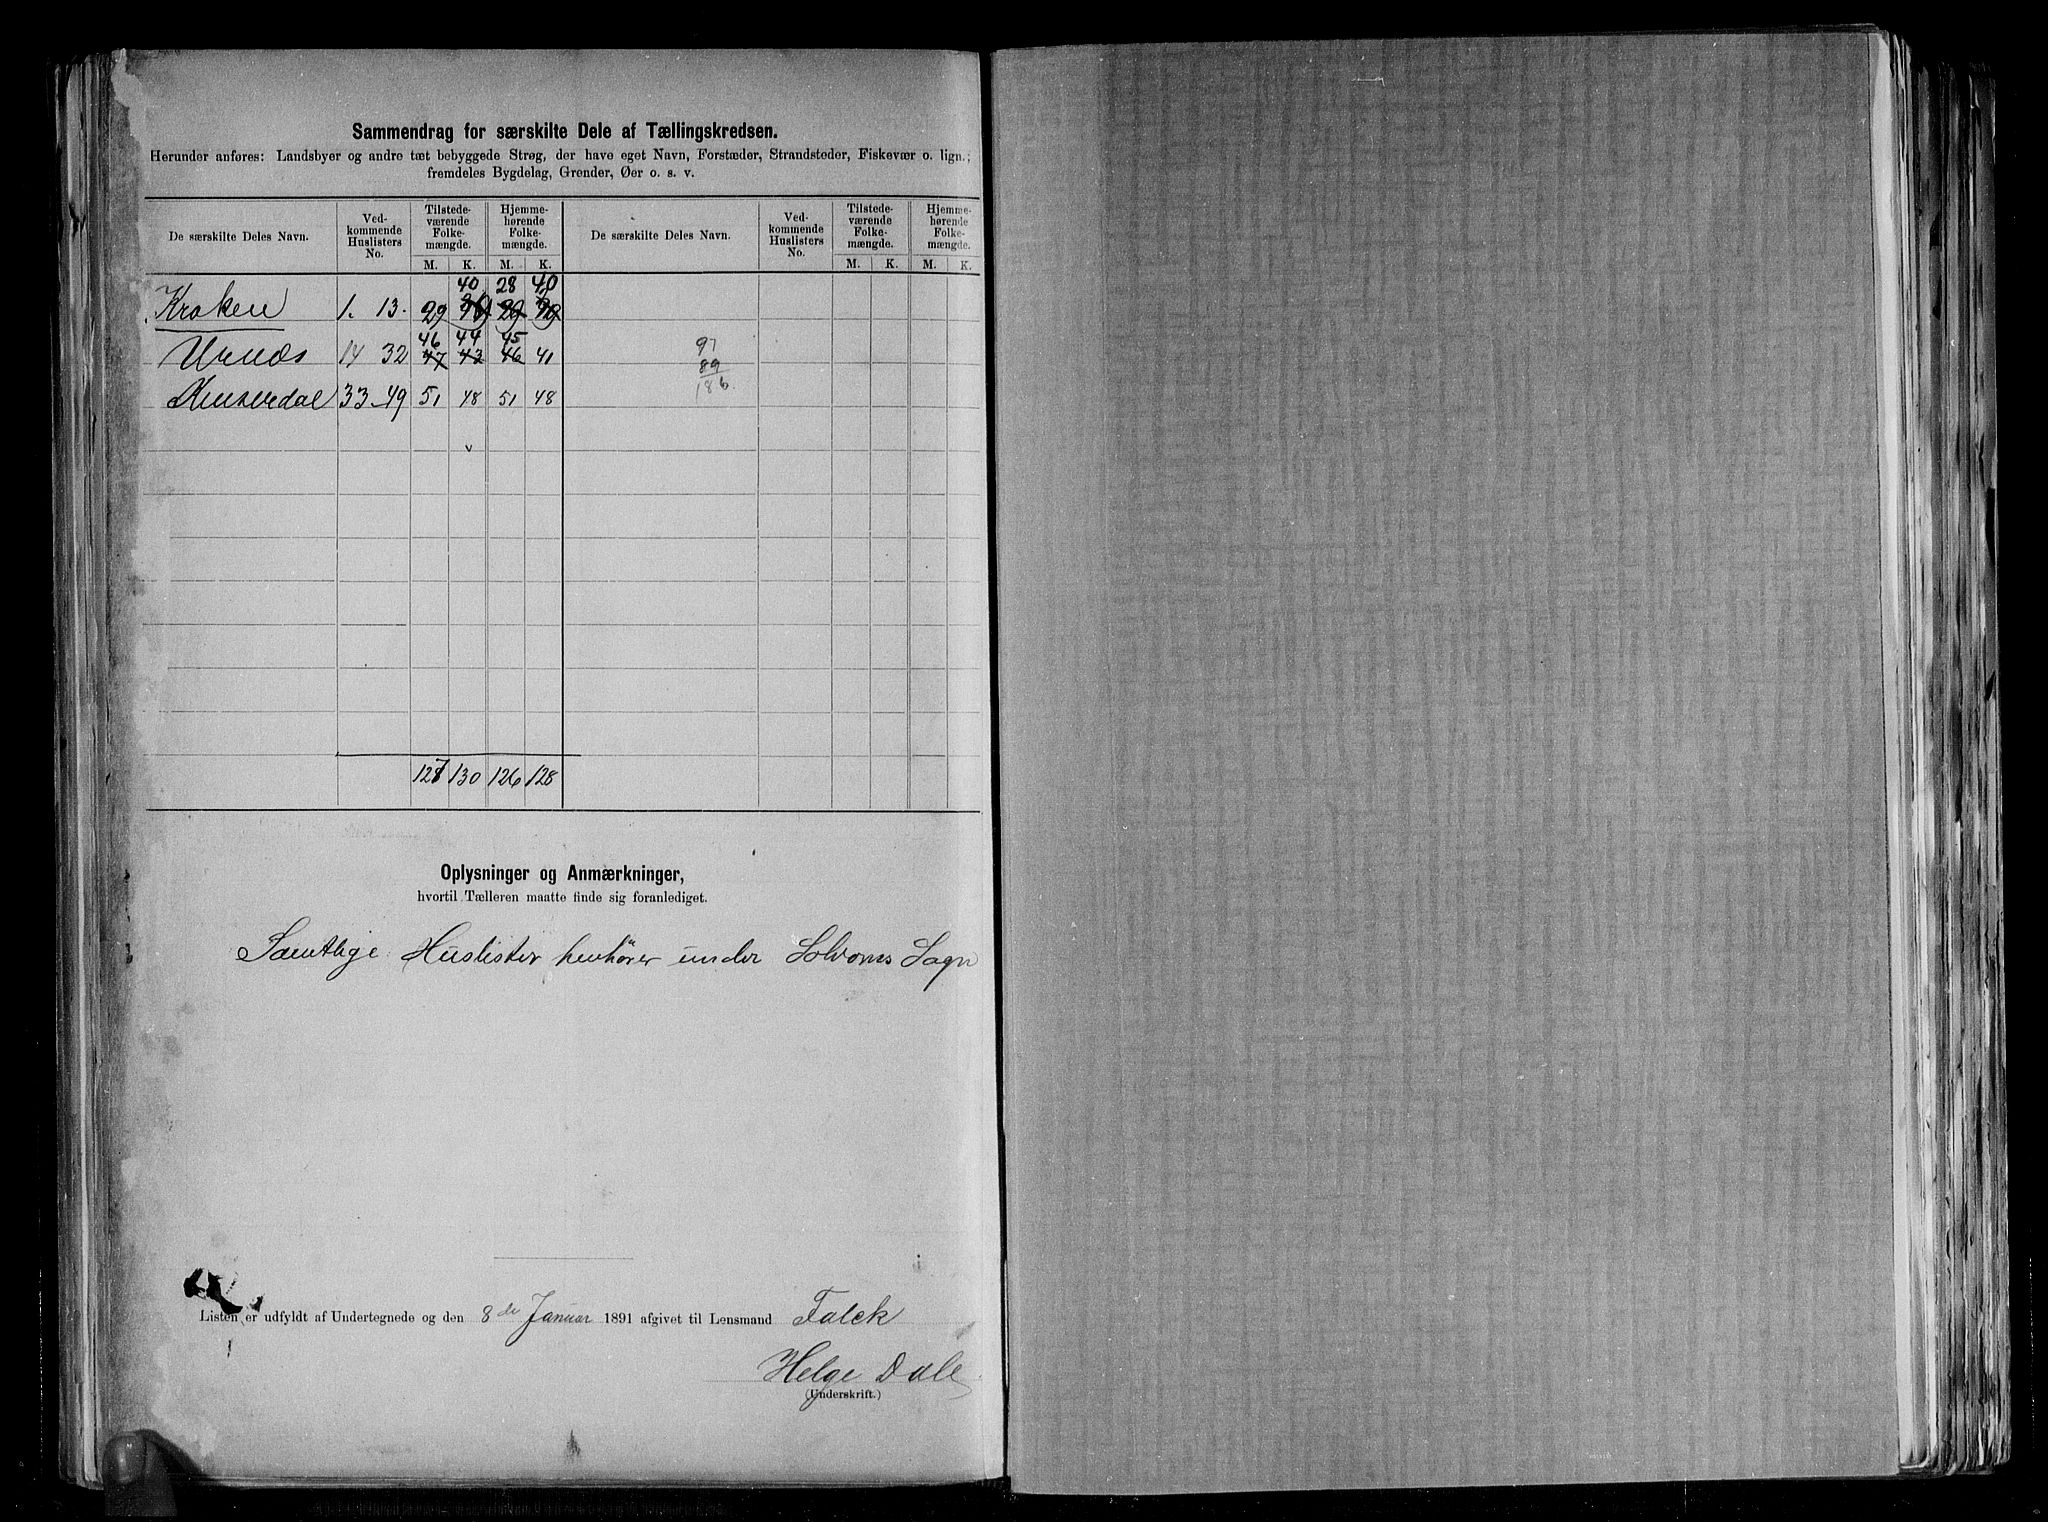 Sammendrag for særskilte Dele af Tællingskredsen.
Herunder anføres: Landsbyer og andre tæt bebyggede Strøg, der have eget Navn, Forstæder, Strandsteder, Fiskevær o. lign.;
fremdeles Bygdelag, Grender, Øer o. s. v.
De særskilte Deles Navn. Ved-kommende Huslisters No. Tilstede-værende Folke-mængde. Hjemme-hørende Folke-mængde. De særskilte Deles Navn. Ved-kommende Huslisters No. Tilstede-værende Folke-mængde. Hjemme-hørende Folke-mængde.
M. K. M. K. M. K. M. K.
40 28 40
Kroken 1. 13. 29
46 44 45
Urnæs 14 32 47 43 46 41
97
89
186
Kinserdal 33-49 51 48 51 48
127 130 126 128
Oplysninger og Anmærkninger,
hvortil Tælleren maatte finde sig foranlediget.
Samtlige Huslister henhører under Solvorns Sogn
Listen er udfyldt af Undertegnede og den 8de Januar 1891 afgivet til Lensmand Falck
Helge Dale
(Underskrift.)